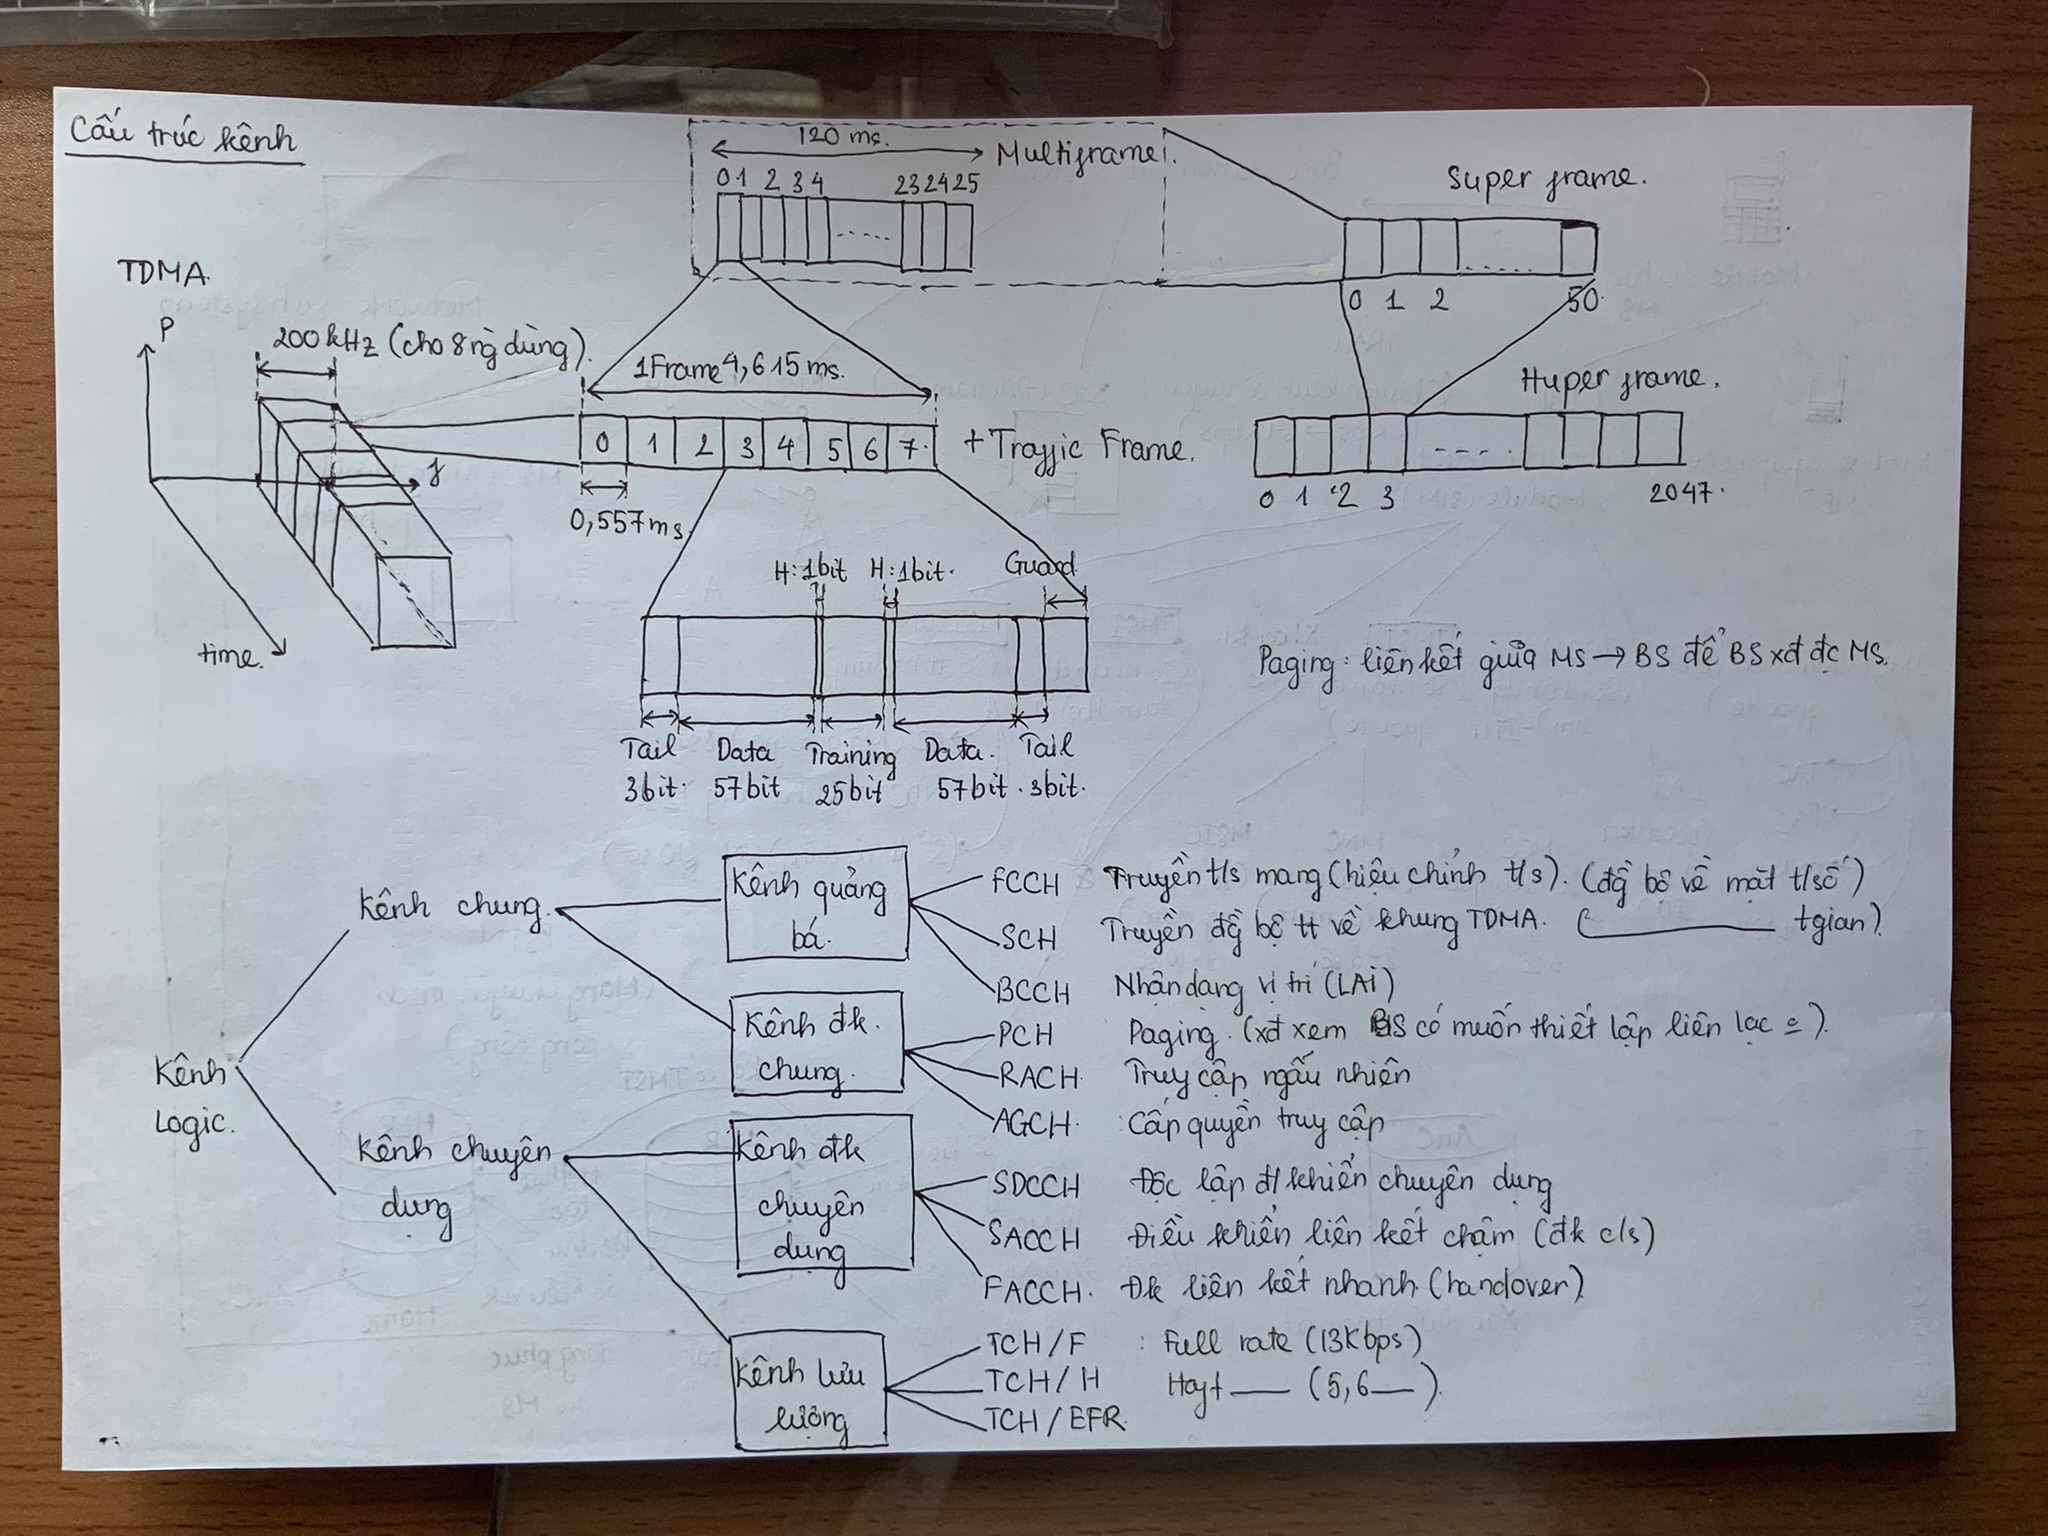 Cấu trúc kênh
120 ms.
Multiframe
0 1 2 3 4 23 24 25
Super frame.
0 1 2 50.
TDMA
P
200kHz (cho 8 ng dùng).
1 Frame 4,615 ms.
Huper frame.
f
0 1 2 3 4 5 6 7.
+ Traffic Frame.
0 1 2 3 2047.
0,557ms
time.
H:1bit H:1bit. Guard
Paging: liên kết giữa MS → BS để BS xđ đc MS.
Tail Data Training Data. Tail
3bit. 57bit 25bit 57bit. 3bit.
Kênh
Logic.
Kênh chung.
Kênh quảng
bá.
FCCH Truyền t/s mang (hiệu chỉnh t/s). (đg̀ bộ về mặt t/số)
SCH Truyền đg̀ bộ tt về khung TDMA. ( ______ tgian).
BCCH Nhận dạng vị trí (LAI)
Kênh đk.
chung.
PCH Paging. (xđ xem BS có muốn thiết lập liên lạc =).
RACH Truy cập ngẫu nhiên
AGCH. Cấp quyền truy cập
Kênh chuyên
dụng
Kênh đk
chuyên
dụng
SDCCH Độc lập đ/khiển chuyên dụng
SACCH Điều khiển liên kết chậm (đk c/s)
FACCH. Đk liên kết nhanh (handover)
Kênh lưu
lượng
TCH/F : Full rate (13Kbps)
TCH/H Haft ___ (5,6 __ ).
TCH/EFR.